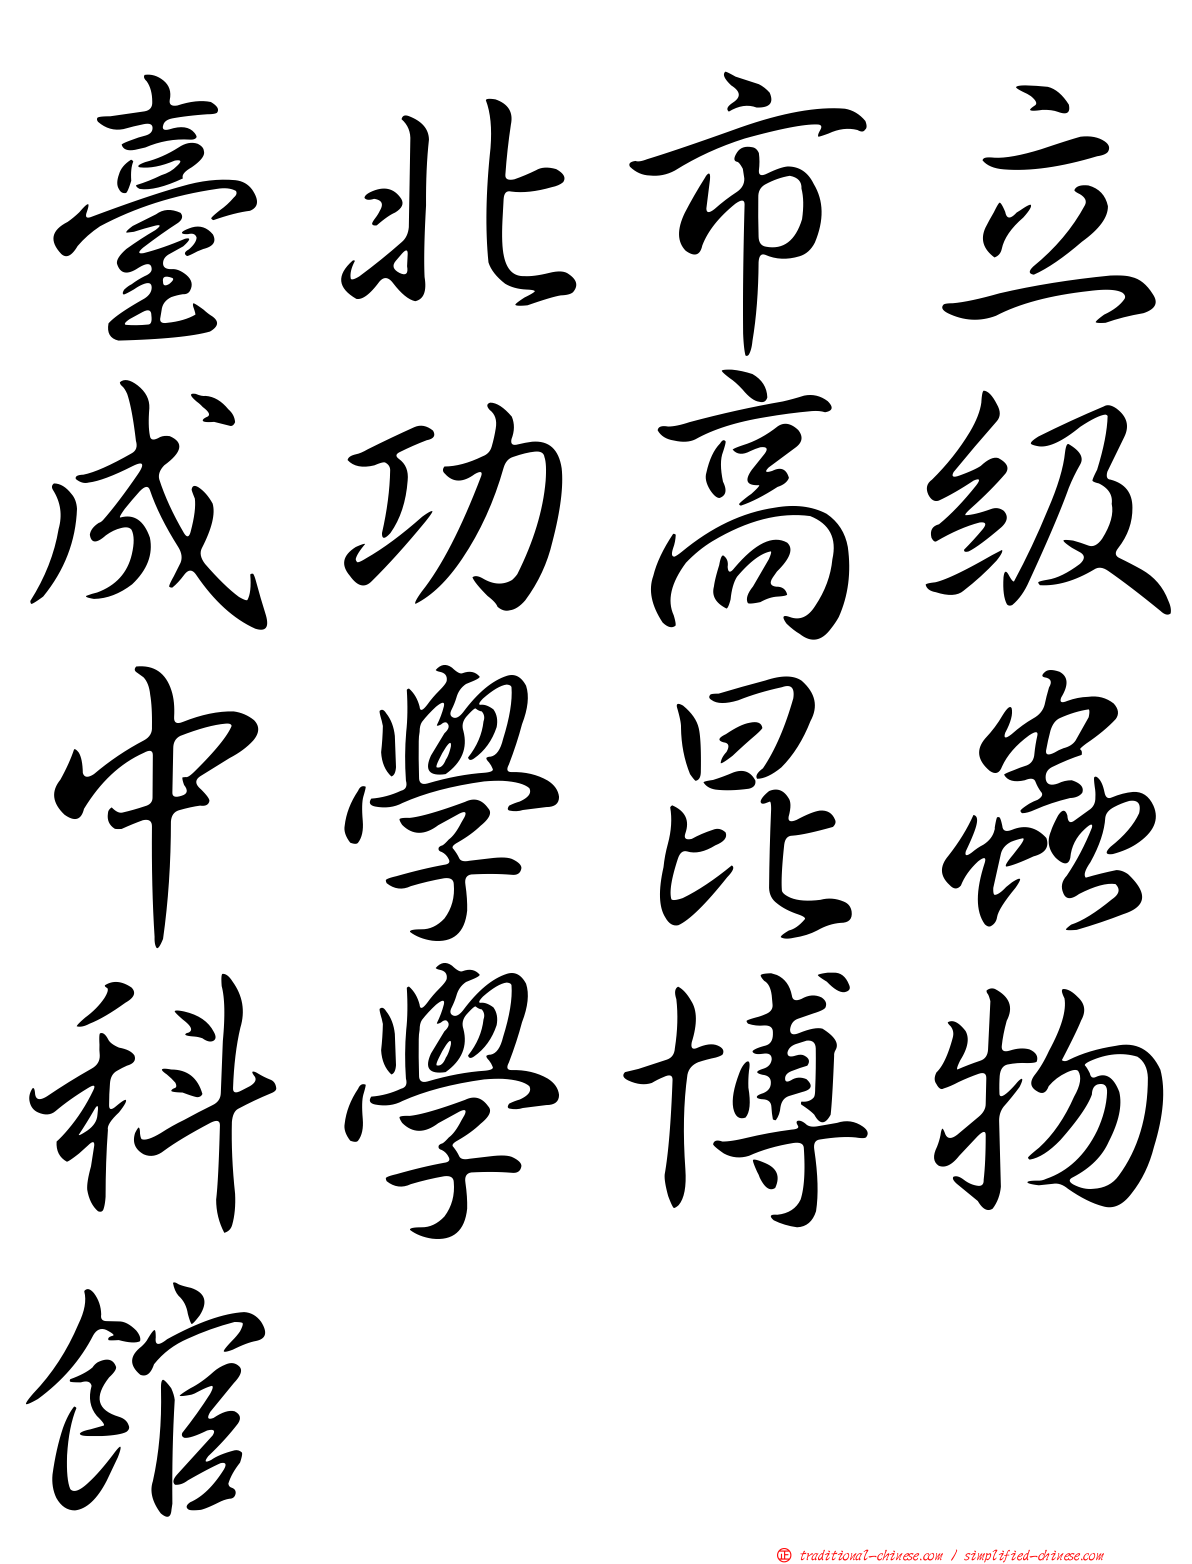 臺北市立
成功高級
中學昆蟲
科學博物
館
正 traditional-chinese.com / simplified-chinese.com